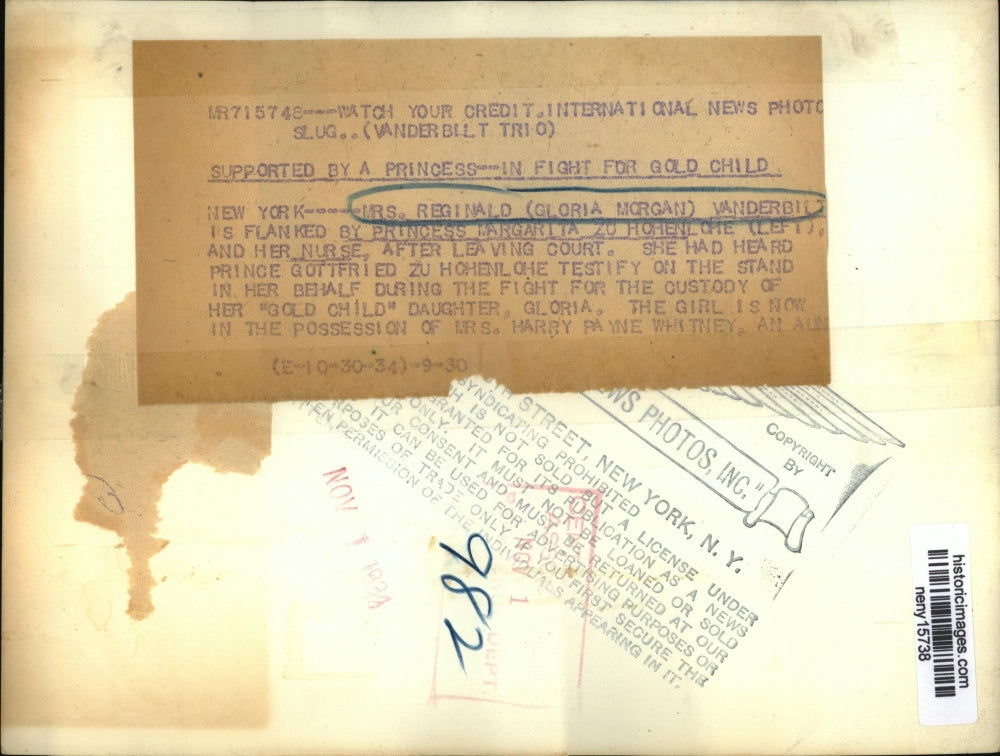 MR715748---WATCH YOUR CREDIT.INTERNATIONAL NEWS PHOTO
SLUG..(VANDERBILT TRIO)
SUPPORTED BY A PRINCESS---IN FIGHT FOR GOLD CHILD
NEW YORK-----MRS. REGINALD (GLORIA MORGAN) VANDERBILT
IS FLANKED BY PRINCESS MARGARITA ZU HOHENLOHE (LEFT),
AND HER NURSE, AFTER LEAVING COURT. SHE HAD HEARD
PRINCE GOTTFRIED ZU HOHENLOHE TESTIFY ON THE STAND
IN HER BEHALF DURING THE FIGHT FOR THE CUSTODY OF
HER "GOLD CHILD" DAUGHTER, GLORIA. THE GIRL IS NOW
IN THE POSSESSION OF MRS. HARRY PAYNE WHITNEY, AN AUN
(E-10-30-34)-9-30
COPYRIGHT
BY
NEWS PHOTOS, INC."
STREET, NEW YORK, N. Y.
SYNDICATING PROHIBITED
IS NOT SOLD BUT A LICENSE UNDER
GRANTED FOR ITS PUBLICATION AS A NEWS
ONLY. IT MUST NOT BE LOANED OR SOLD
OUR CONSENT AND MUST BE RETURNED AT OUR
IT CAN BE USED FOR ADVERTISING PURPOSES OR
PURPOSES OF TRADE ONLY IF YOU FIRST SECURE THE
WRITTEN PERMISSION OF THE INDIVIDUALS APPEARING IN IT.
NOV 1 1934
NOV 1
DEPT.
982
historicimages.com
neny15738